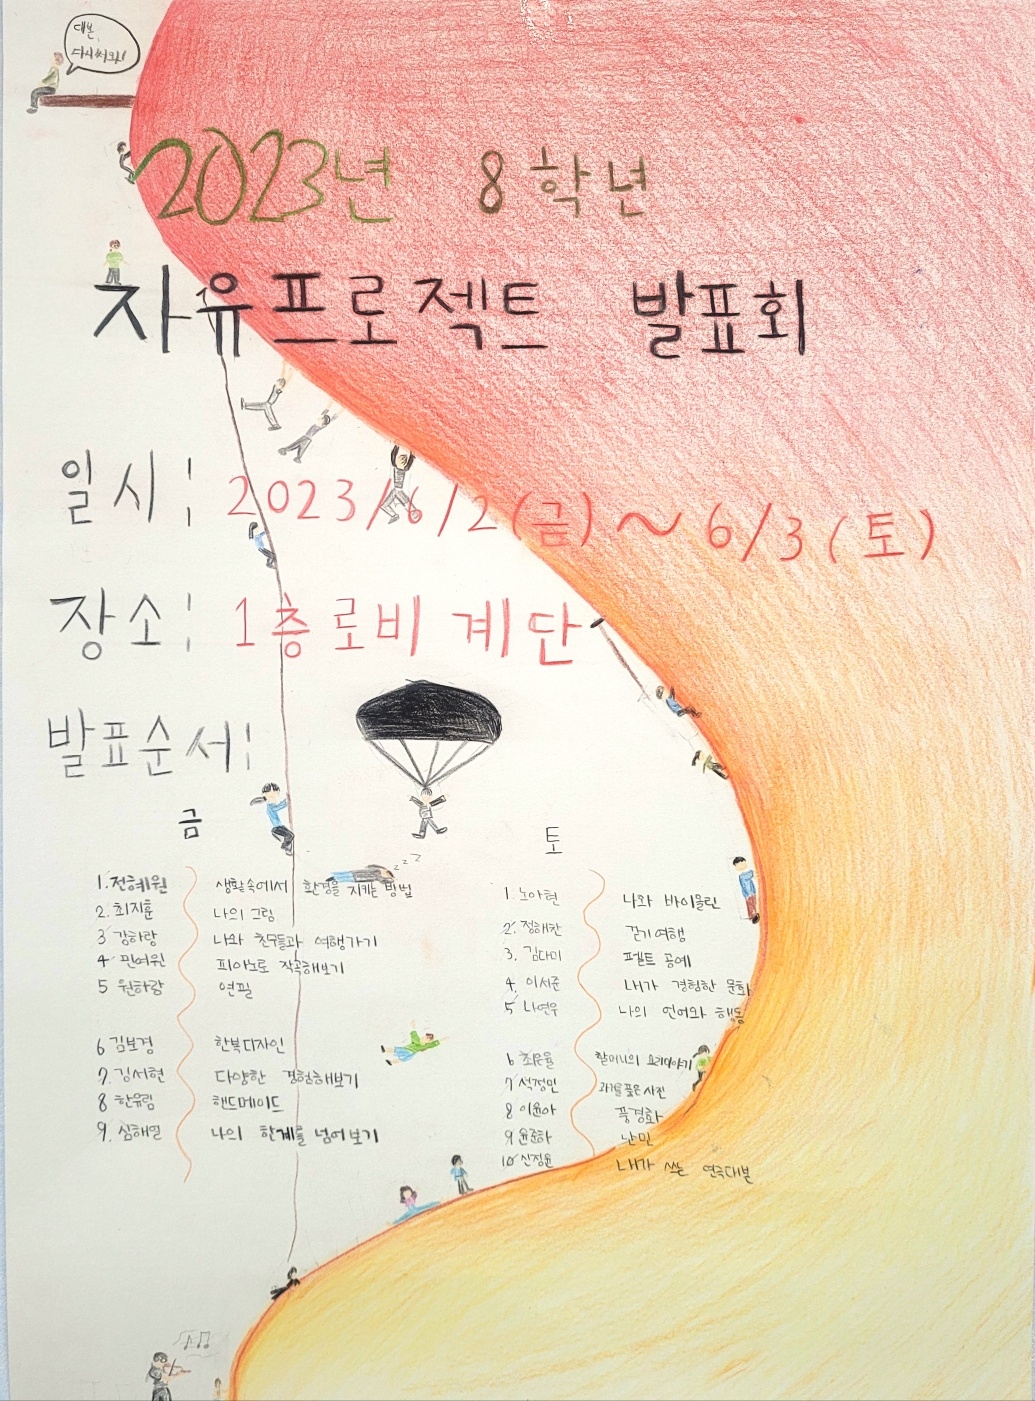 대본
다시써와!
2023년 8학년
자유프로젝트 발표회
일시: 2023/6/2(금)~6/3(토)
장소: 1층로비 계단
발표순서:
금
1. 전혜원 생활속에서 환경을 지키는 방법
2. 최지훈 나의 그림
3 김하랑 나와 친구들과 여행가기
4 민여원 피아노로 작곡해보기
5 원하랑 연필
6 김보경 한복디자인
7. 김서현 다양한 경험해보기
8 한유림 핸드메이드
9. 심해열 나의 한계를 넘어보기
토
1. 노아현 나와 바이올린
2. 정해찬 걷기여행
3. 김다미 펠트 공예
4. 이서준 내가 경험한 문화
5 나연우 나의 언어와 행동
6 최은율 할머니의 요리이야기
7 석정민 과거를 품은 사진
8 이윤아 풍경화
9 윤준하 난민
10 신정윤 내가 쓰는 연극대본
z z z